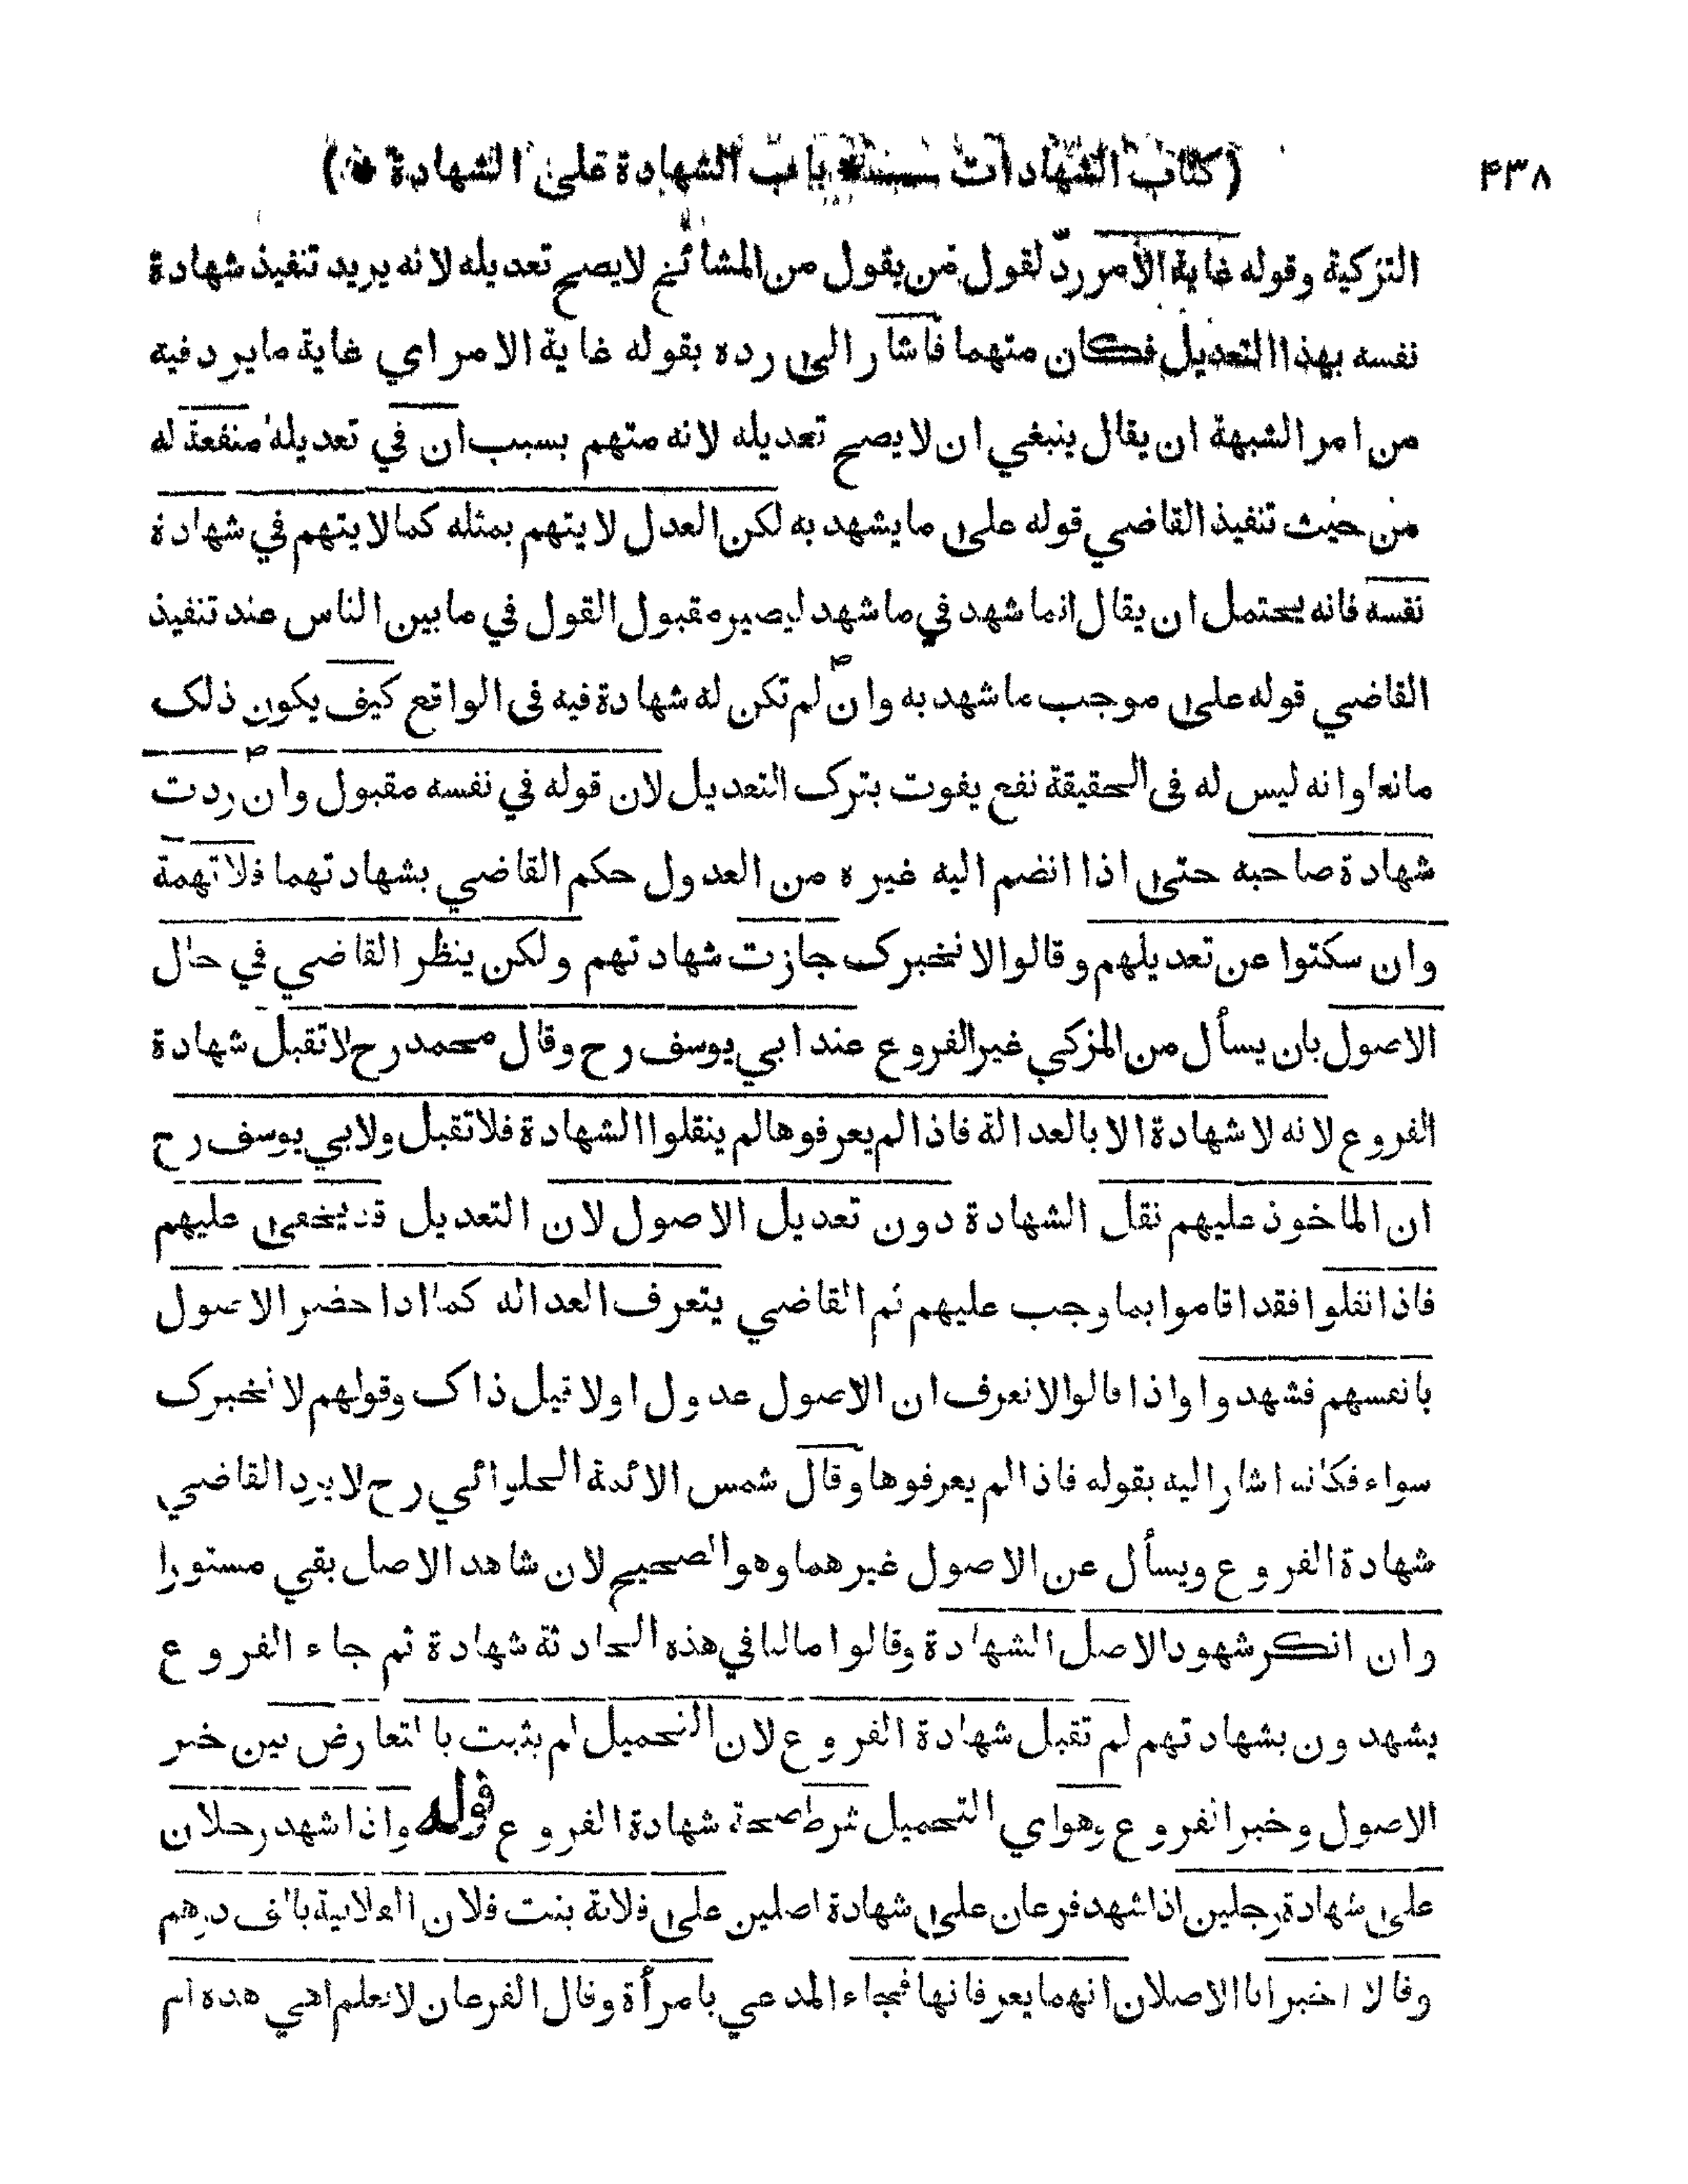 (كتاب الشهادات * باب الشهادة على الشهادة *) ۴۳۸
التزكية وقوله غاية الأمر ردّ لقول من يقول من المشائخ لايصح تعديله لانه يريد تنفيذ شهادة
نفسه بهذا التعديل فكان متهما فاشار الى رده بقوله غاية الامر اي غاية مايرد فيه
من امر الشبهة ان يقال ينبغي ان لايصح تعديله لانه متهم بسبب ان في تعديله منفعة له
من حيث تنفيذ القاضي قوله على مايشهد به لكن العدل لايتهم بمثله كما لايتهم في شهادة
نفسه فانه يحتمل ان يقال انما شهد في ما شهد ليصير مقبول القول في ما بين الناس عند تنفيذ
القاضي قوله على موجب ما شهد به وان لم تكن له شهادة فيه فى الواقع كيف يكون ذلك
مانعا وانه ليس له فى الحقيقة نفع يفوت بترك التعديل لان قوله في نفسه مقبول وان ردت
شهادة صاحبه حتى اذا انضم اليه غيره من العدول حكم القاضي بشهادتهما فلاتهمة
وان سكتوا عن تعديلهم وقالوا لانخبرك جازت شهادتهم ولكن ينظر القاضي في حال
الاصول بان يسأل من المزكي غير الفروع عند ابي يوسف رح وقال محمد رح لاتقبل شهادة
الفروع لانه لا شهادة الا بالعدالة فاذا لم يعرفوها لم ينقلوا الشهادة فلاتقبل ولابي يوسف رح
ان الماخوذ عليهم نقل الشهادة دون تعديل الاصول لان التعديل قد يخفى عليهم
فاذا نقلوا فقد اقاموا بما وجب عليهم ثم القاضي يتعرف العدالة كما اذا حضر الاصول
بانفسهم فشهدوا واذا قالوا لانعرف ان الاصول عدول اولا قيل ذاك وقولهم لانخبرك
سواء فكانه اشار اليه بقوله فاذا لم يعرفوها وقال شمس الائمة الحلوائي رح لايرد القاضي
شهادة الفروع ويسأل عن الاصول غيرهما وهو الصحيح لان شاهد الاصل بقي مستورا
وان انكر شهود الاصل الشهادة وقالوا مالنا في هذه الحادثة شهادة ثم جاء الفروع
يشهدون بشهادتهم لم تقبل شهادة الفروع لان التحميل لم يثبت بالتعارض بين خبر
الاصول وخبر الفروع وهو اي التحميل شرط صحة شهادة الفروع قوله واذا شهد رجلان
على شهادة رجلين اذا شهد فرعان على شهادة اصلين على فلانة بنت فلان الفلانية بالف درهم
وقالا اخبرانا الاصلان انهما يعرفانها فجاء المدعي بامرأة وقال الفرعان لانعلم اهي هذه ام